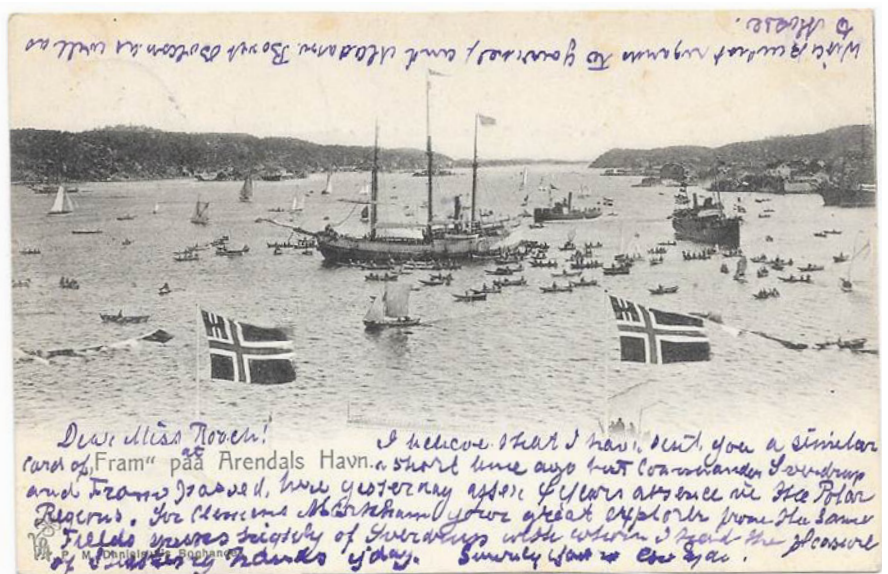 With kindest regards to yourself, and Madame Bovet Bolton as well as
D Morse.
Dear Miss Roach!
I believe that I have sent you a similar
card of „Fram“ paa Arendals Havn. a short time ago but Commander Sverdrup
at
and Fram passed, here yesterday after 4 years absence in the Polar
Regions. Sir Clemens Markham your great explorer from the same
Fields speaks highly of Sverdrup with whom I had the pleasure
P. M. Danielsen's Boghandel
of shaking hands yday. Sincerely yours